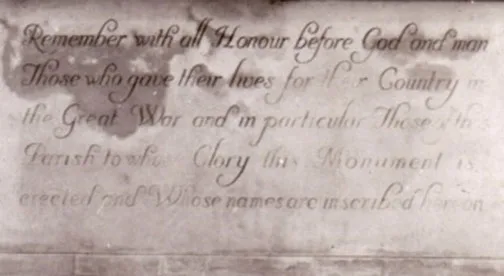 Remember with all Honour before God and man
Those who gave their lives for their Country in
the Great War and in particular Those of this
Parish to whose Glory this Monument is
erected and Whose names are inscribed hereon